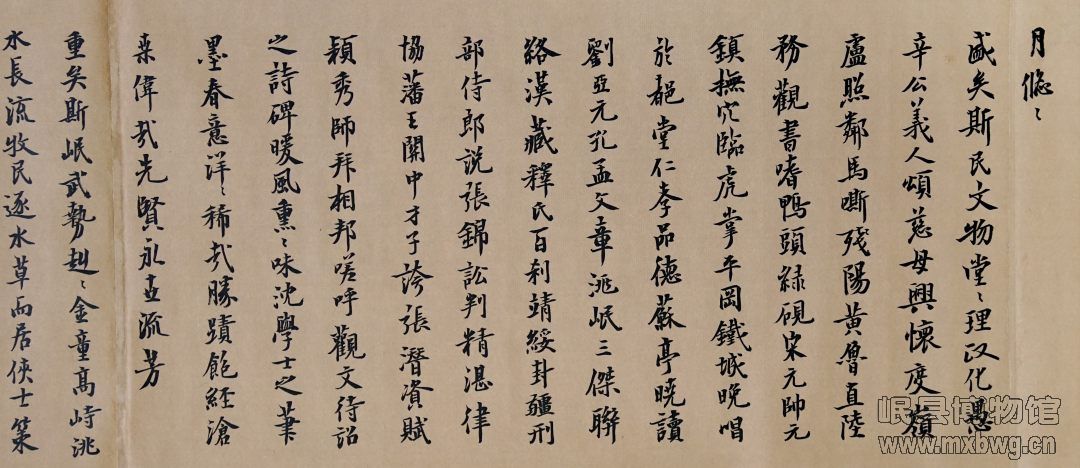 月幽〻
盛矣斯民文物堂〻理汉化愚
辛公義人頌慈母興懷度嶺
盧照鄰馬嘶殘陽黃魯直陸
務觀書嗜鴨頭綠硯宋元帥元
鎮撫穴臨虎掌平岡鐵城晚唱
於郒堂仁孝品德蘇亭曉讀
劉亞元孔孟文章洮岷三傑聯
絡漢藏釋氏百刹靖綏封疆刑
部侍郎說張錦訟判精湛律
協藩王關中才子誇張潛資賦
穎秀師拜相邦嗟呼觀文待詔
之詩碑暖風熏〻味沈學士之筆
墨春意洋〻稀哉勝蹟飽經滄
桑偉哉先賢永垂流芳
重矣斯岷武勢赳〻金童高峙洮
水長流牧民逐水草而居俠士策
岷县博物馆
www.mxbwg.cn